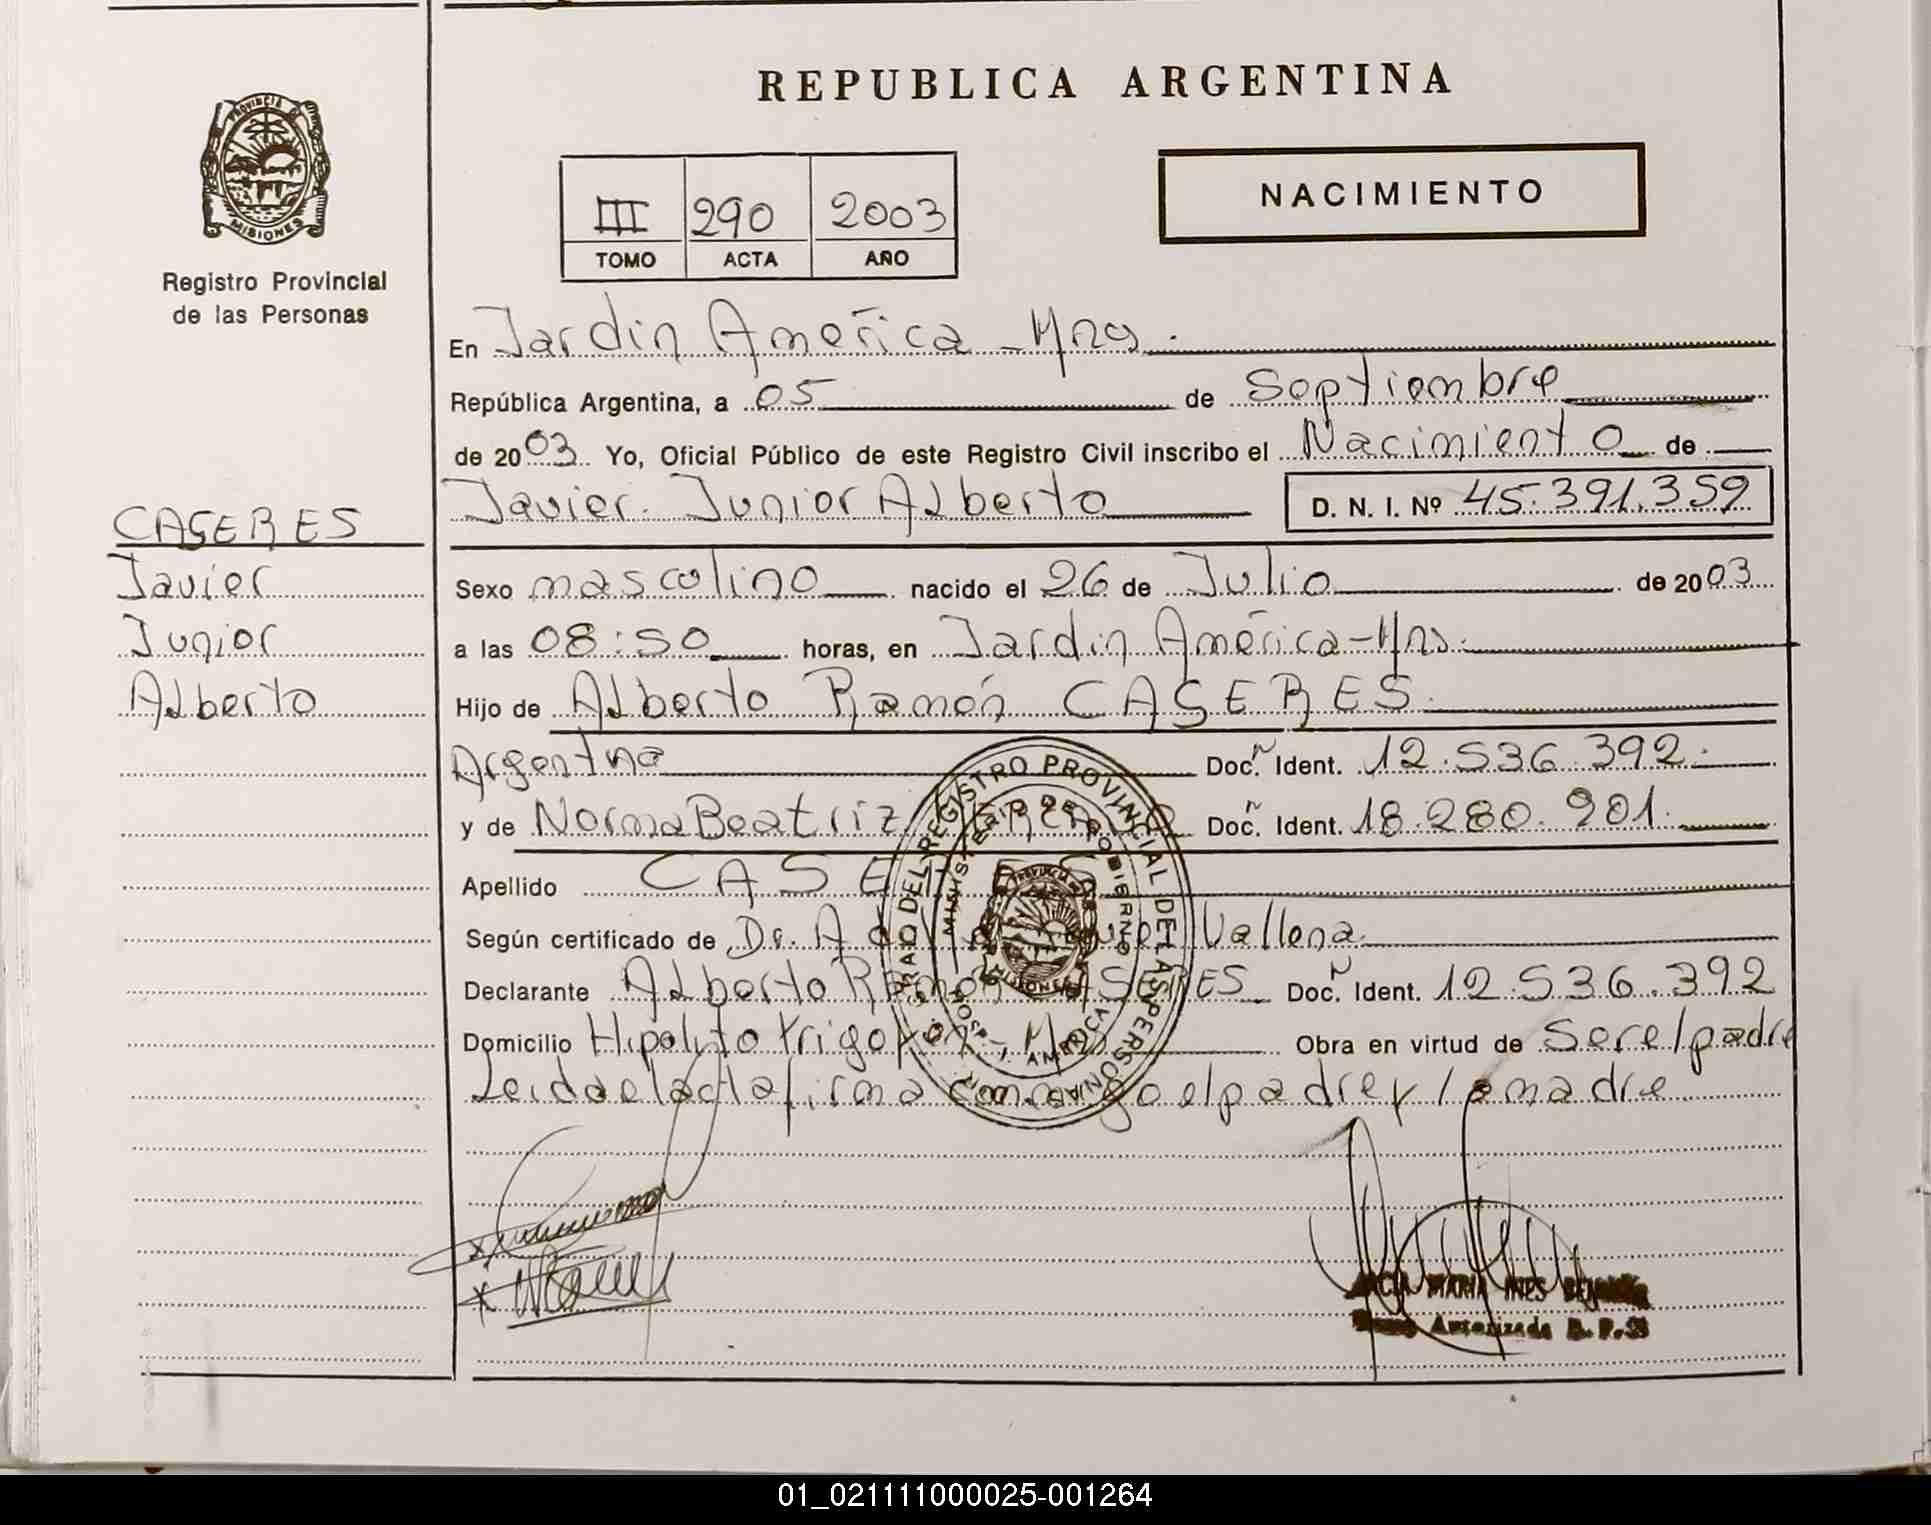 REPUBLICA ARGENTINA
PROVINCIA DE MISIONES
Registro Provincial
de las Personas
III 290 2003
TOMO ACTA AÑO
NACIMIENTO
En Jardin América - Mns.
República Argentina, a 05 de Septiembre
de 2003 Yo, Oficial Público de este Registro Civil inscribo el Nacimiento de
Javier Junior Alberto D. N. I. Nº 45.391.359
CASERES
Javier
Junior
Alberto
Sexo mascolino nacido el 26 de Julio de 2003
a las 08:50 horas, en Jardin América - Mns.
Hijo de Alberto Ramón CASERES
Argentina Doc. Ident. 12.536.392
y de Norma Beatriz Doc. Ident. 18.280.901.
Apellido CASERES
Según certificado de Dr. Vallena
Declarante Alberto Ramón CASERES Doc. Ident. 12.536.392
Domicilio Hipolito Yrigoyen - Mns. Obra en virtud de Ser el padre
Leida el acta firma conmigo el padre y la madre
REGISTRO PROVINCIAL DE LAS PERSONAS
MINISTERIO DE GOBIERNO
PROVINCIA DE MISIONES
AMERICA
MARIA INES
Autorizada R. P. P.
01_021111000025-001264